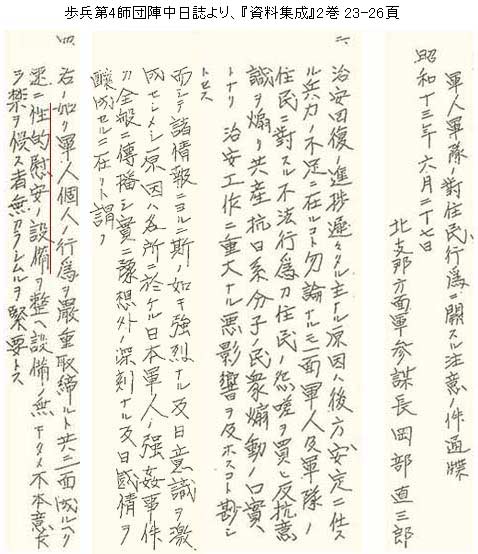 歩兵第4師団陣中日誌より、『資料集成』2巻 23-26頁
軍人軍隊ノ對住民行為ニ関スル注意ノ件通牒
昭和十三年六月二十七日
北支那方面軍参謀長 岡部直三郎
二、
治安回復ノ進捗遅々タル主ナル原因ハ後方安定ニ任ス
ル兵力ノ不足ニ在ルコト勿論ナルモ一面軍人及軍隊ノ
住民ニ對スル不法行為カ住民ノ怨嗟ヲ買ヒ反抗意
識ヲ煽リ共産抗日系分子ノ民衆煽動ノ口實
トナリ 治安工作ニ重大ナル悪影響ヲ及ホスコト尠シ
トセス
而シテ諸情報ニヨルニ斯ノ如キ強烈ナル反日意識ヲ激
成セシメシ原因ハ各所ニ於ケル日本軍人ノ強姦事件
カ全般ニ傳播シ實ニ豫想外ノ深刻ナル反日感情ヲ
醸成セルニ在リト謂フ
四、
右ノ如ク軍人個人ノ行為ヲ嚴重取締ルト共ニ一面成ルヘク
速ニ性的慰安ノ設備ヲ整ヘ設備ノ無キタメ不本意乍
ラ禁ヲ侵ス者無カラシムルヲ緊要トス